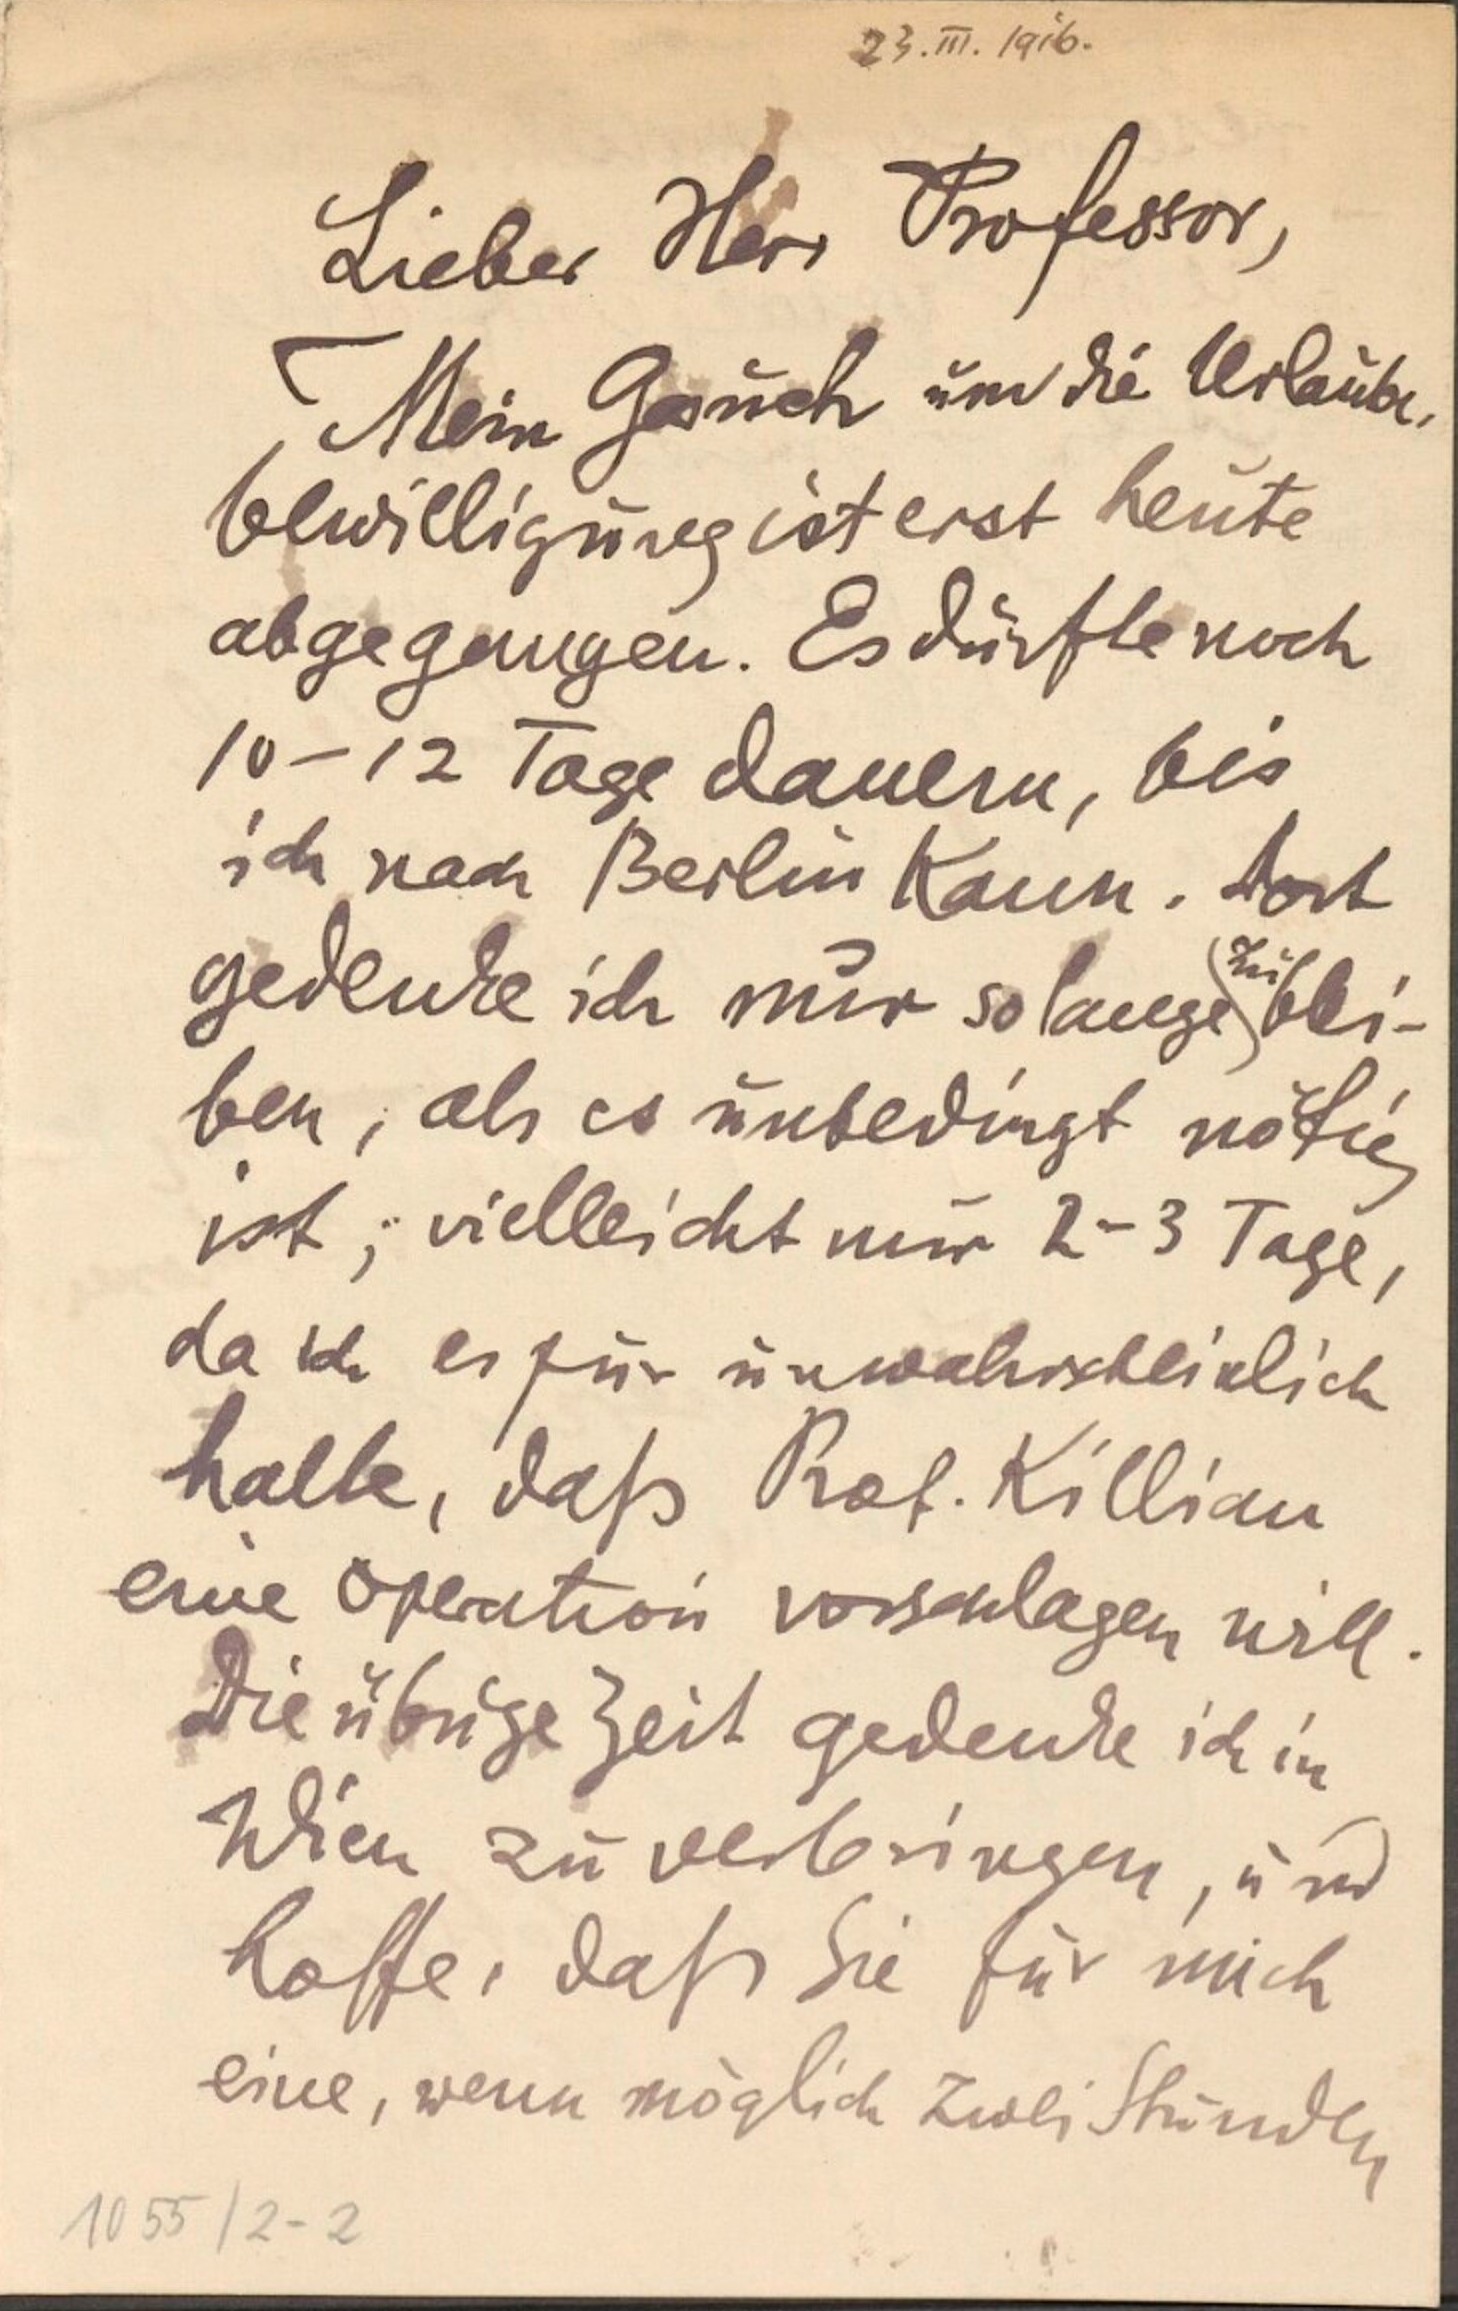 23. III. 1916.
Lieber Herr Professor,
Mein Gesuch um die Urlaubs-
bewilligung ist erst heute
abgegangen. Es dürfte noch
10-12 Tage dauern, bis
ich nach Berlin kann. Dort
gedenke ich nur so lange zu blei-
ben, als es unbedingt nötig
ist; vielleicht nur 2-3 Tage,
da ich es für unwahrscheinlich
halte, daß Prof. Killian
eine Operation vorschlagen will.
Die übrige Zeit gedenke ich in
Wien zu verbringen, und
hoffe, daß Sie für mich
eine, wenn möglich zwei Stunden
1055/2-2